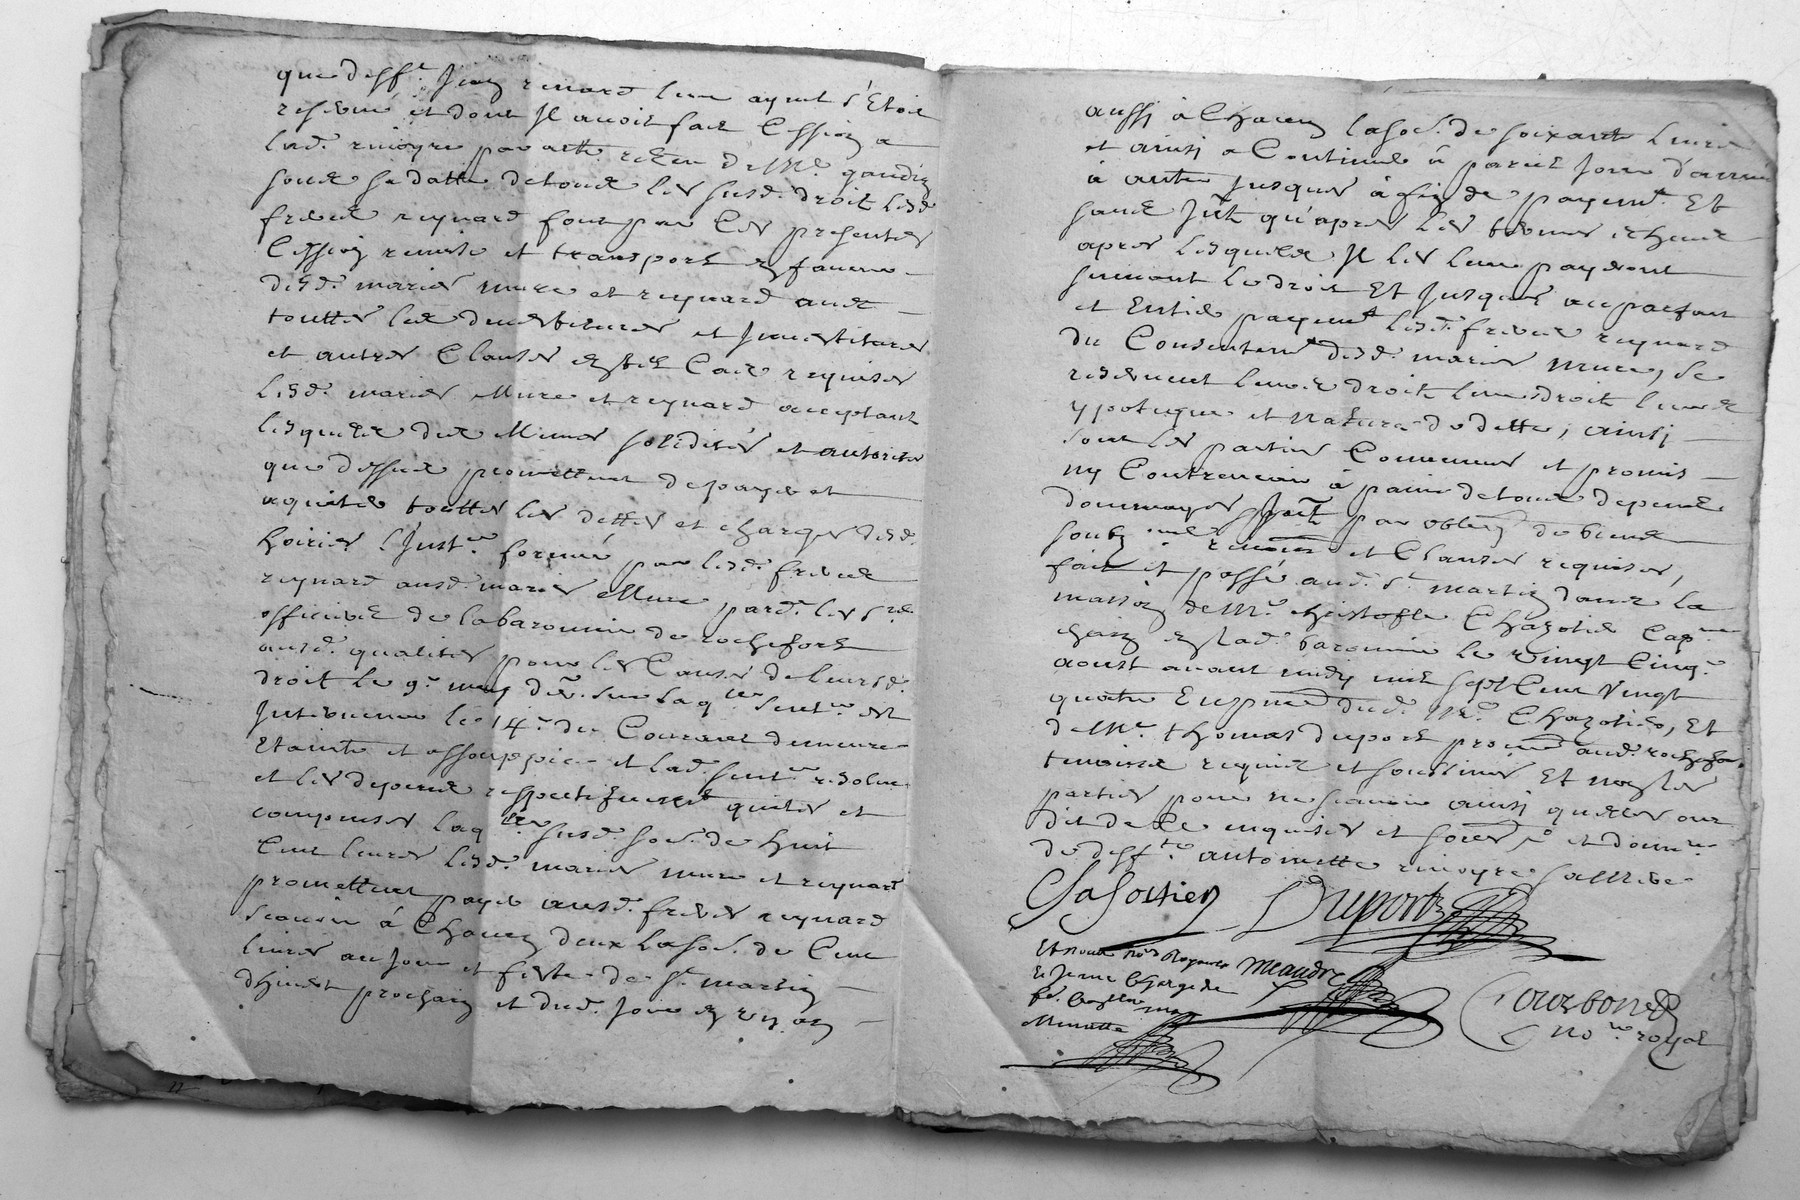 que deff.t Jean renard leur ayeul s'Etoit
reservé et dont Jl avoit fait Cession a
lad. rivoyre par acte receu de Me. gaudin
soub sa datte de tous les susd. droit lesd.
freres reynard font par Ces presentes
Cession remise et transport en faveur
desd. mariés mure et reynard avec
touttes les devestitures et Jnvestitures
et autres Clauses en tel Cas requises
lesd. mariés Mure et reynard acceptant
lesquels des Mesmes solidités et autorités
que dessus promettent de payer et
aquitter touttes les dettes et charges desd.
hoiries l'Just.ce formée par lesd. freres
reynard ausd. mariés Mure pard. les srs.
officiers de la baronnie de rochefort
ausd. qualités pour les Causes de leursd.
droit le 9e. may der. sur laq.lle sent.ce est
Jntervenue le 14e. du Courant demeure
Etainte et assouppie et lad. sent.ce resolue
et les depens respectivement quittes et
compensés laq.lle susd. som. de huit
Cent livres lesd. mariés mure et reynard
promettent payer ausd. freres reynard
scavoir à Chacun deux la som. de Cent
livres au jour et feste de St. martin
d'hivert prochain et dud. jour en un an
aussi à Chacun la som. de soixante livres
et ainsi a Continuer a pareil jour d'année
à autre jusques à fin de payemt. Et
sans Jnt. qu'apres les termes echeus
apres lesquels Jl les leur payeront
suivant le droit Et jusques au parfait
et Entier payemt. lesd. freres reynard
du Consentemt. desd. mariés mure, se
reservent leurs droit leursdroit leurs
ypoteque et Nature de dette, ainsi
sont les parties Convenues et promis
ny Contrevenir à paine de tous depens
dommages par oblig.on de biens
soubm.ons renon.ons et Clauses requises,
fait et passé aud. St. martin dans la
maison de Me. christofle Chazotier Cap.ne
chain en lad. baronnie le vingt Cinq.e
aoust avant midy mil sept Cent vingt
quatre En pnce. dud. Me. Chazotier, Et
de Me. thomas duport procu. aud. rochefort
tmoins requis et soussignés Et non les
parties pour ne scavoir ainsi quelles ont
dit de Ce enquises et som.ées et dom.
de deff.te antoinette rivoyre sa Mere
Chasottier Duport
Et nous no.e Royal Meandre
Courbon
No.re royal
Minutte